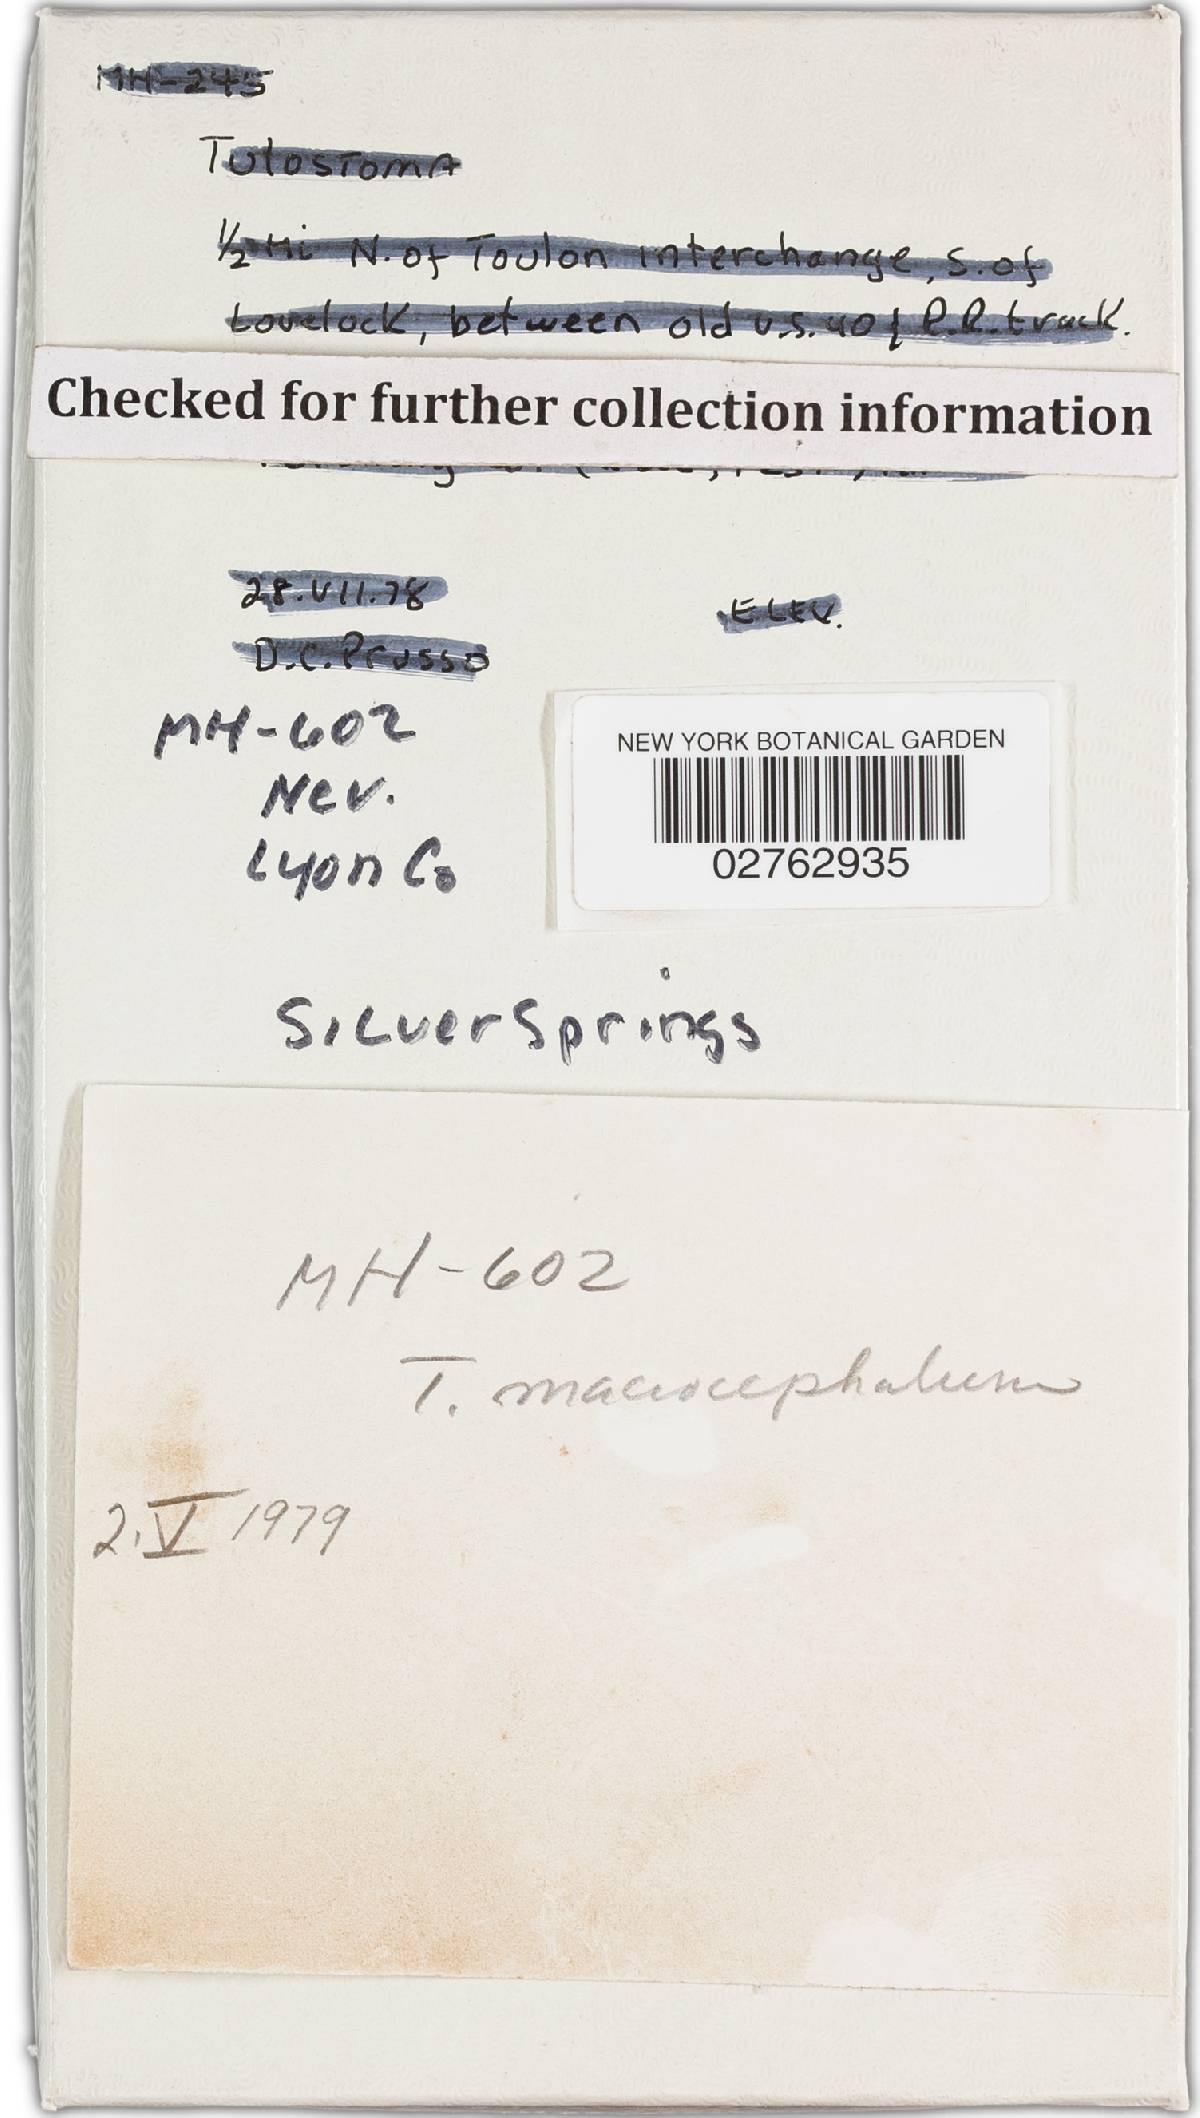 MH-245
Tulostoma
½ Mi N. of Toulon interchange, S. of
Lovelock, between old U.S. 40 & R.R. track.
Checked for further collection information
28.VII.78
ELEV.
D.C. Prusso
MH-602
Nev.
Lyon Co
NEW YORK BOTANICAL GARDEN
02762935
Silver Springs
MH-602
T. macrocephalum
2.V 1979